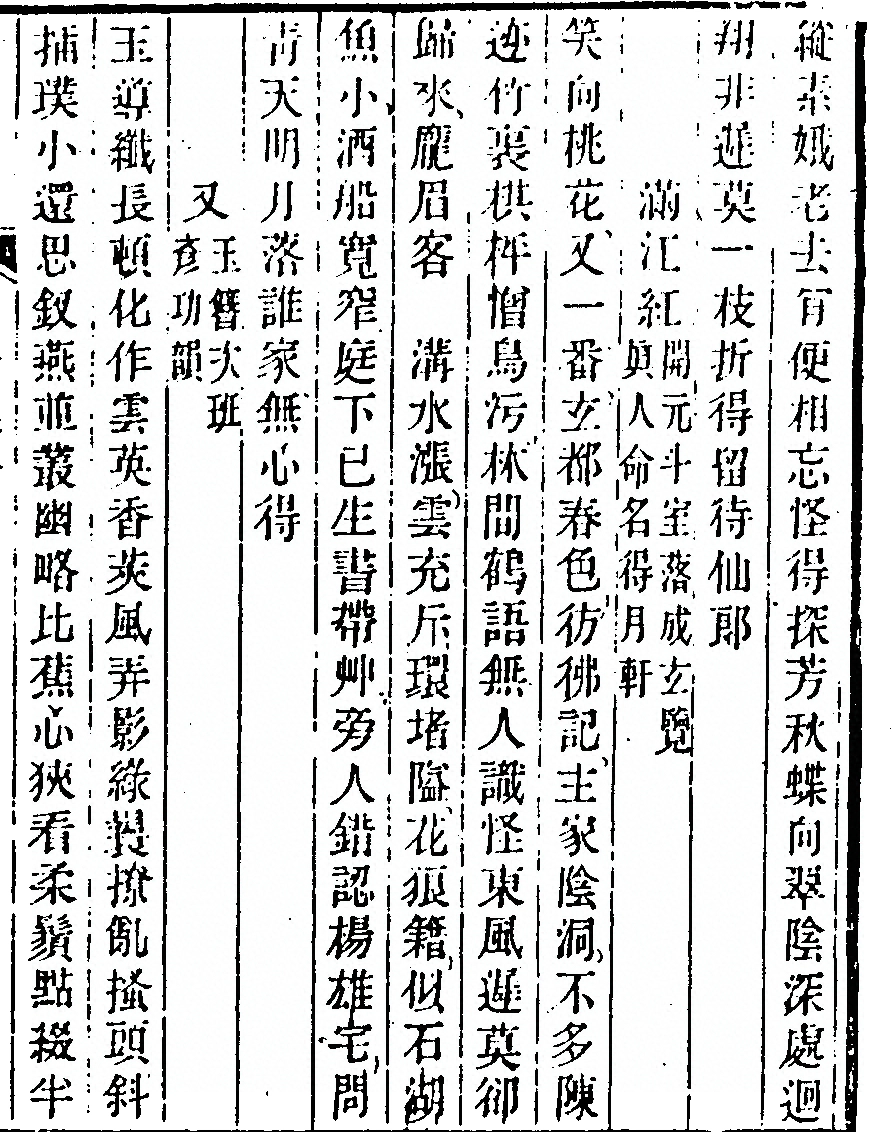 縱素娥老去肯便相忘怪得探芳秋蝶向翠陰深處迴
翔非遲莫一枝折得留待仙郎
滿江紅開元斗室落成玄覽
眞人命名得月軒
笑向桃花又一番玄都春色彷彿記主家陰洞不多陳
迹竹裏棋枰憎鳥污林間鶴語無人識怪東風遲莫卻
歸來龐眉客　溝水漲雲充斥環堵隘花狼籍似石湖
魚小酒船寬窄庭下已生書帶艸旁人錯認楊雄宅問
青天明月落誰家無心得
又玉簪次班
彥功韻
玉導纖長頓化作雲英香莢風弄影綠鬟撩亂搔頭斜
插璞小還思釵燕並叢幽略比蕉心狹看柔鬚點綴半